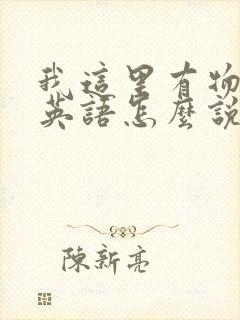 我這里有物
英語怎麼說
陳新亮